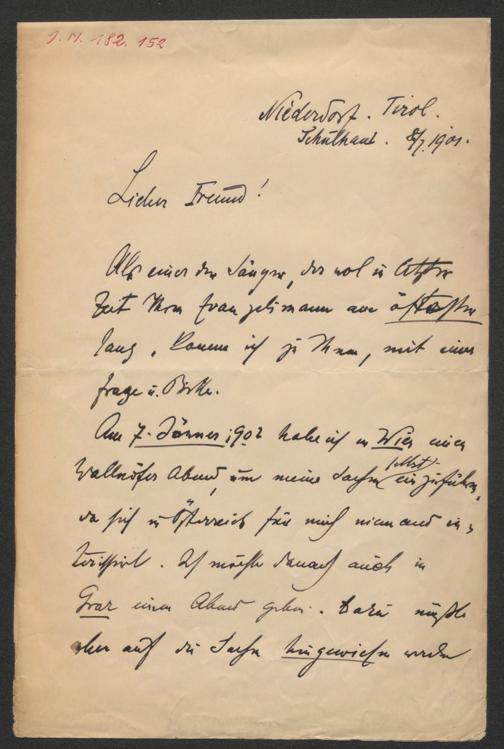 J. N. 182.152
Niederdorf. Tirol.
Schulhaus. 8/7.1901.
Lieber Freund!
Als einer der Sänger, der wol in letzter
Zeit Ihren Evangelimann am öftesten
sang, komme ich zu Ihnen, mit einer
Frage u. Bitte.
Am 7. Jänner 1902 habe ich in Wien einen
Wallnöfer Abend, um meine Sachen selbst einzuführen,
da sich in Österreich für mich niemand in-
teressirt. Ich möchte darauf auch in
Graz einen Abend geben. Dazu müßte
aber auf die Sache hingewiesen werden